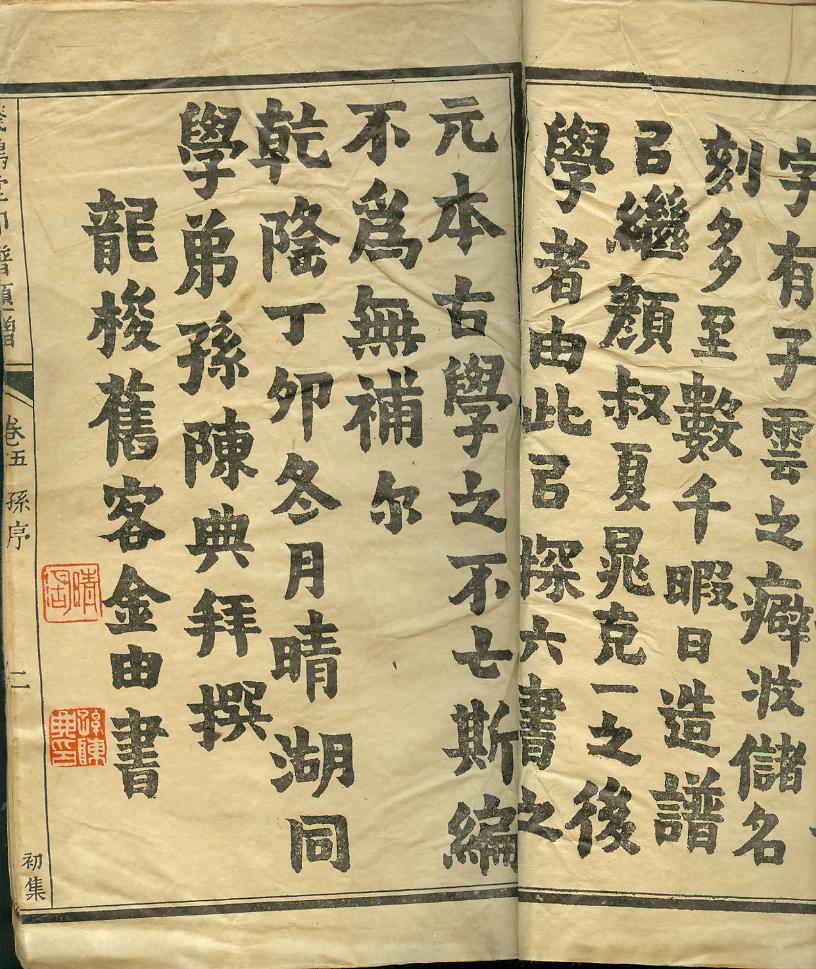 字有子雲之癖收儲名
刻多至數千暇日造譜
㠯繼顏叔夏晁克一之後
學者由此㠯探六書之
元本古學之不亾斯編
不爲無補尔
乾隆丁卯冬月晴湖同
學弟孫陳典拜撰
龍梭舊客金由書
卷五 孫序
二
初集
晴湖
孫陳典印